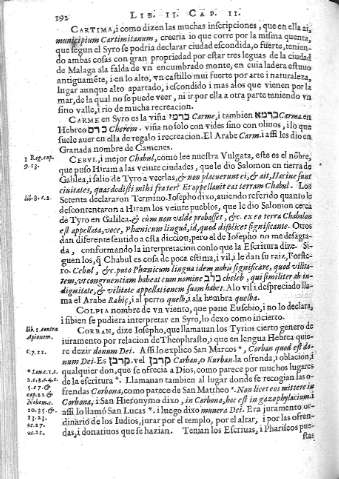 192 LIB. II. CAP. II.
CARTIMA, i como dizen las muchas inscripciones, que en ella ai
municipium Cartimitanum, creeria io que corre por la misma quenta,
que segun el Syro se podria declarar ciudad escondida, o fuerte, tenien-
do ambas cosas con gran propriedad por estar tres leguas de la ciudad
de Malaga ala falda de vn encumbrado monte, en cuia ladera estuuo
antiguamête, i en lo alto, vn castillo mui fuerte por arte i naturaleza,
lugar aunque alto apartado, i escondido i mas alos que vienen por la
mar, de la qual no se puede veer, ni ir por ella a otra parte teniendo vn
sino valle, i rio de mucha recreacion.
CARME en Syro es viña כרמי Carme, i tambien כרמא Carma en
Hebreo כרם Cherem. viña no solo con vides sino con olmos, i lo que
suele auer en ella de regalo i recreacion. El Arabe Carm. i assi les dio en
Granada nombre de Carmenes.
1 Reg. cap.
9. 13.
CERVI, i mejor Chabul, como lee nuestra Vulgata, este es el nôbre,
que puso Hiram a las veinte ciudades, que le dio Salomon en tierra de
Galilea, i salio de Tyro a veerlas, & non placuerunt ei, & ait, Hæcine sunt
ciuitates, quas dedisti mihi frater? Et appellauit eas terram Chabul. Los
lib. 8. c. 2.
Setenta declararon Termino. Iosepho dixo, auiendo referido quanto le
descontentaron a Hiram los veinte pueblos, que le dio Salomon cerca
de Tyro en Galilea. & cùm non valde probasset, & ex eo terra Chabulon
est appellata, vece, Phœnicum linguâ, id, quod displicet significante. Otros
dan diferente sentido a esta diccion, pero el de Iosepho no me desagra-
da, conformando la interpretacion conlo que la Escritura dize. Si-
guen los, q̃ Chabul es cosa de poca estima, i vil, i le dan su raiz, Forste-
ro. Cebul, & puto Phœnicum lingua idem adhuc significare, quod vilita-
tem, vt conuentium habeat cum nomine כלב cheleb, qui similiter ab in-
dignitate, & vilitate appellationem suam habet. Alo vil i despreciado lla-
ma el Arabe Rabiç, i al perro quelb, i ala hembra quelba.
COLPIA nombre de vn viento, que pone Eusebio, i no lo declara,
i sibien se pudiera interpretar en Syro, lo dexo como incierto.
lib. 1. contra
Apionem.
CORBAN, dize Iosepho, que llamauan los Tyrios cierto genero de
iuramento por relacion de Theophrasto, i que en lengua Hebrea quie-
c. 7. 11.
re dezir donum Dei. Assi lo explicò San Marcos *, Corban quod est do-
num Dei. Es קרבן vel. קורבן Carban, o Kurban. la ofrenda, i oblacion, i
qualquier don, que se ofrecia a Dios, como parece por muchos lugares
de la escritura *. Llamauan tambien al lugar donde se recogian las o-
frendas Corbona, como parece de San Mattheo *. Non licet eos mittere in
Corbona, i San Hieronymo dixo, in Corbona, hoc est in gazophylacium. i
assi lo llamò San Lucas *. i luego dixo munera Dei. Era juramento or-
dinario de los Iudios, jurar por el templo, por el altar, i por las ofren-
das, i donatiuos que se hazian. Tenian los Escriuas, i Phariseos pues-
stas